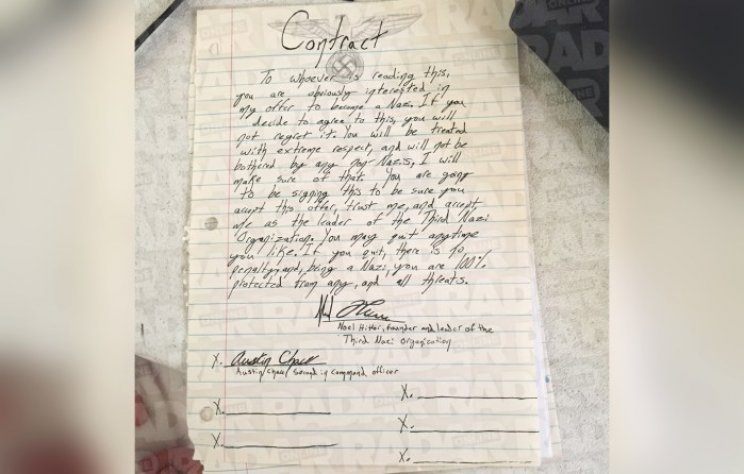 Contract
To whoever is reading this,
you are obviously interested in
my offer to become a Nazi. If you
decide to agree to this, you will
not regret it. You will be treated
with extreme respect, and will not be
bothered by any non Nazis, I will
make sure of that. You are going
to be signing this to be sure you
accept this offer, trust me, and accept
me as the leader of the Third Nazi
Organization. You may quit anytime
you like. If you quit, there is no
penalty, and, being a Nazi, you are 100%
protected from any, and all threats.
Noel Hitler, founder and leader of the
Third Nazi Organization
X. Austin
Austin second in command officer
X.
X.
X.
X.
X.
RADAR ONLINE